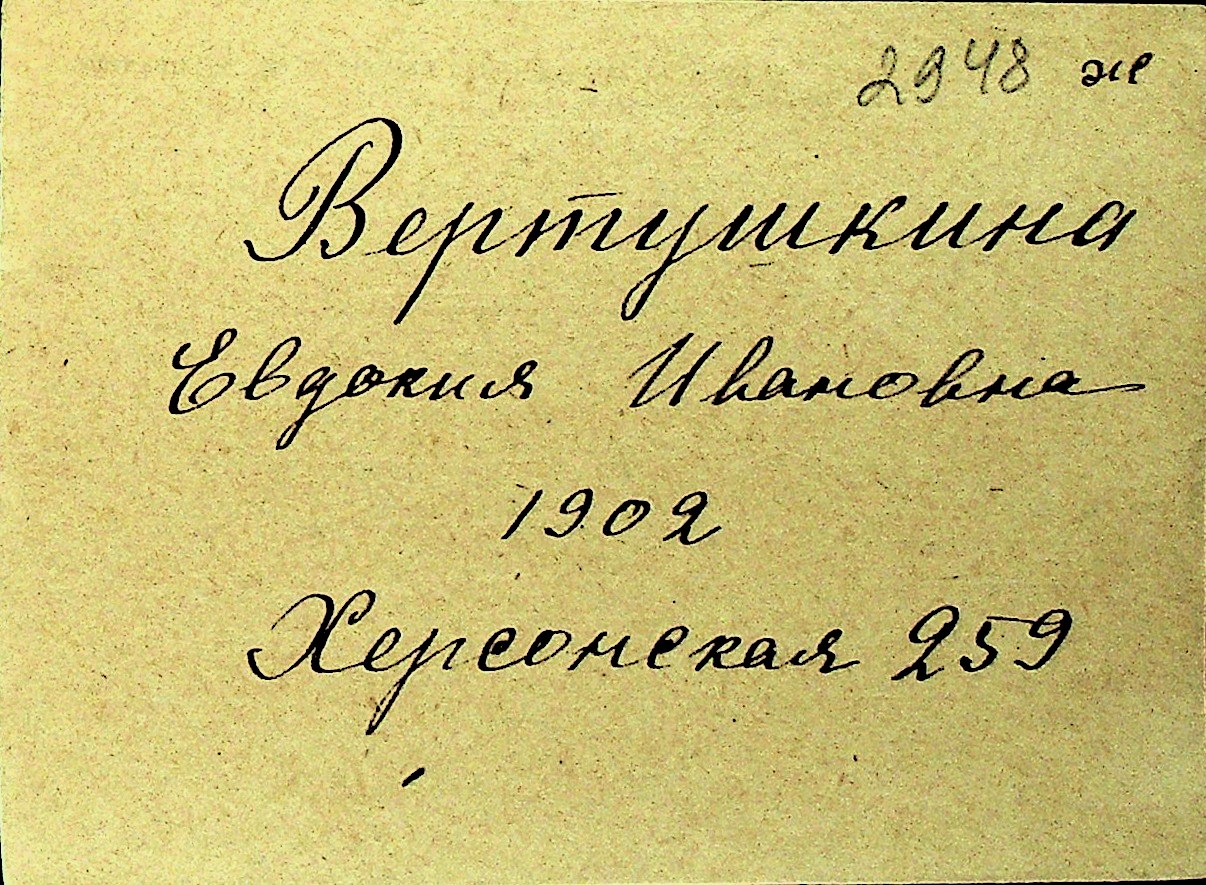 2948 ж
Вертушкина
Евдокия Ивановна
1902
Херсонская 259